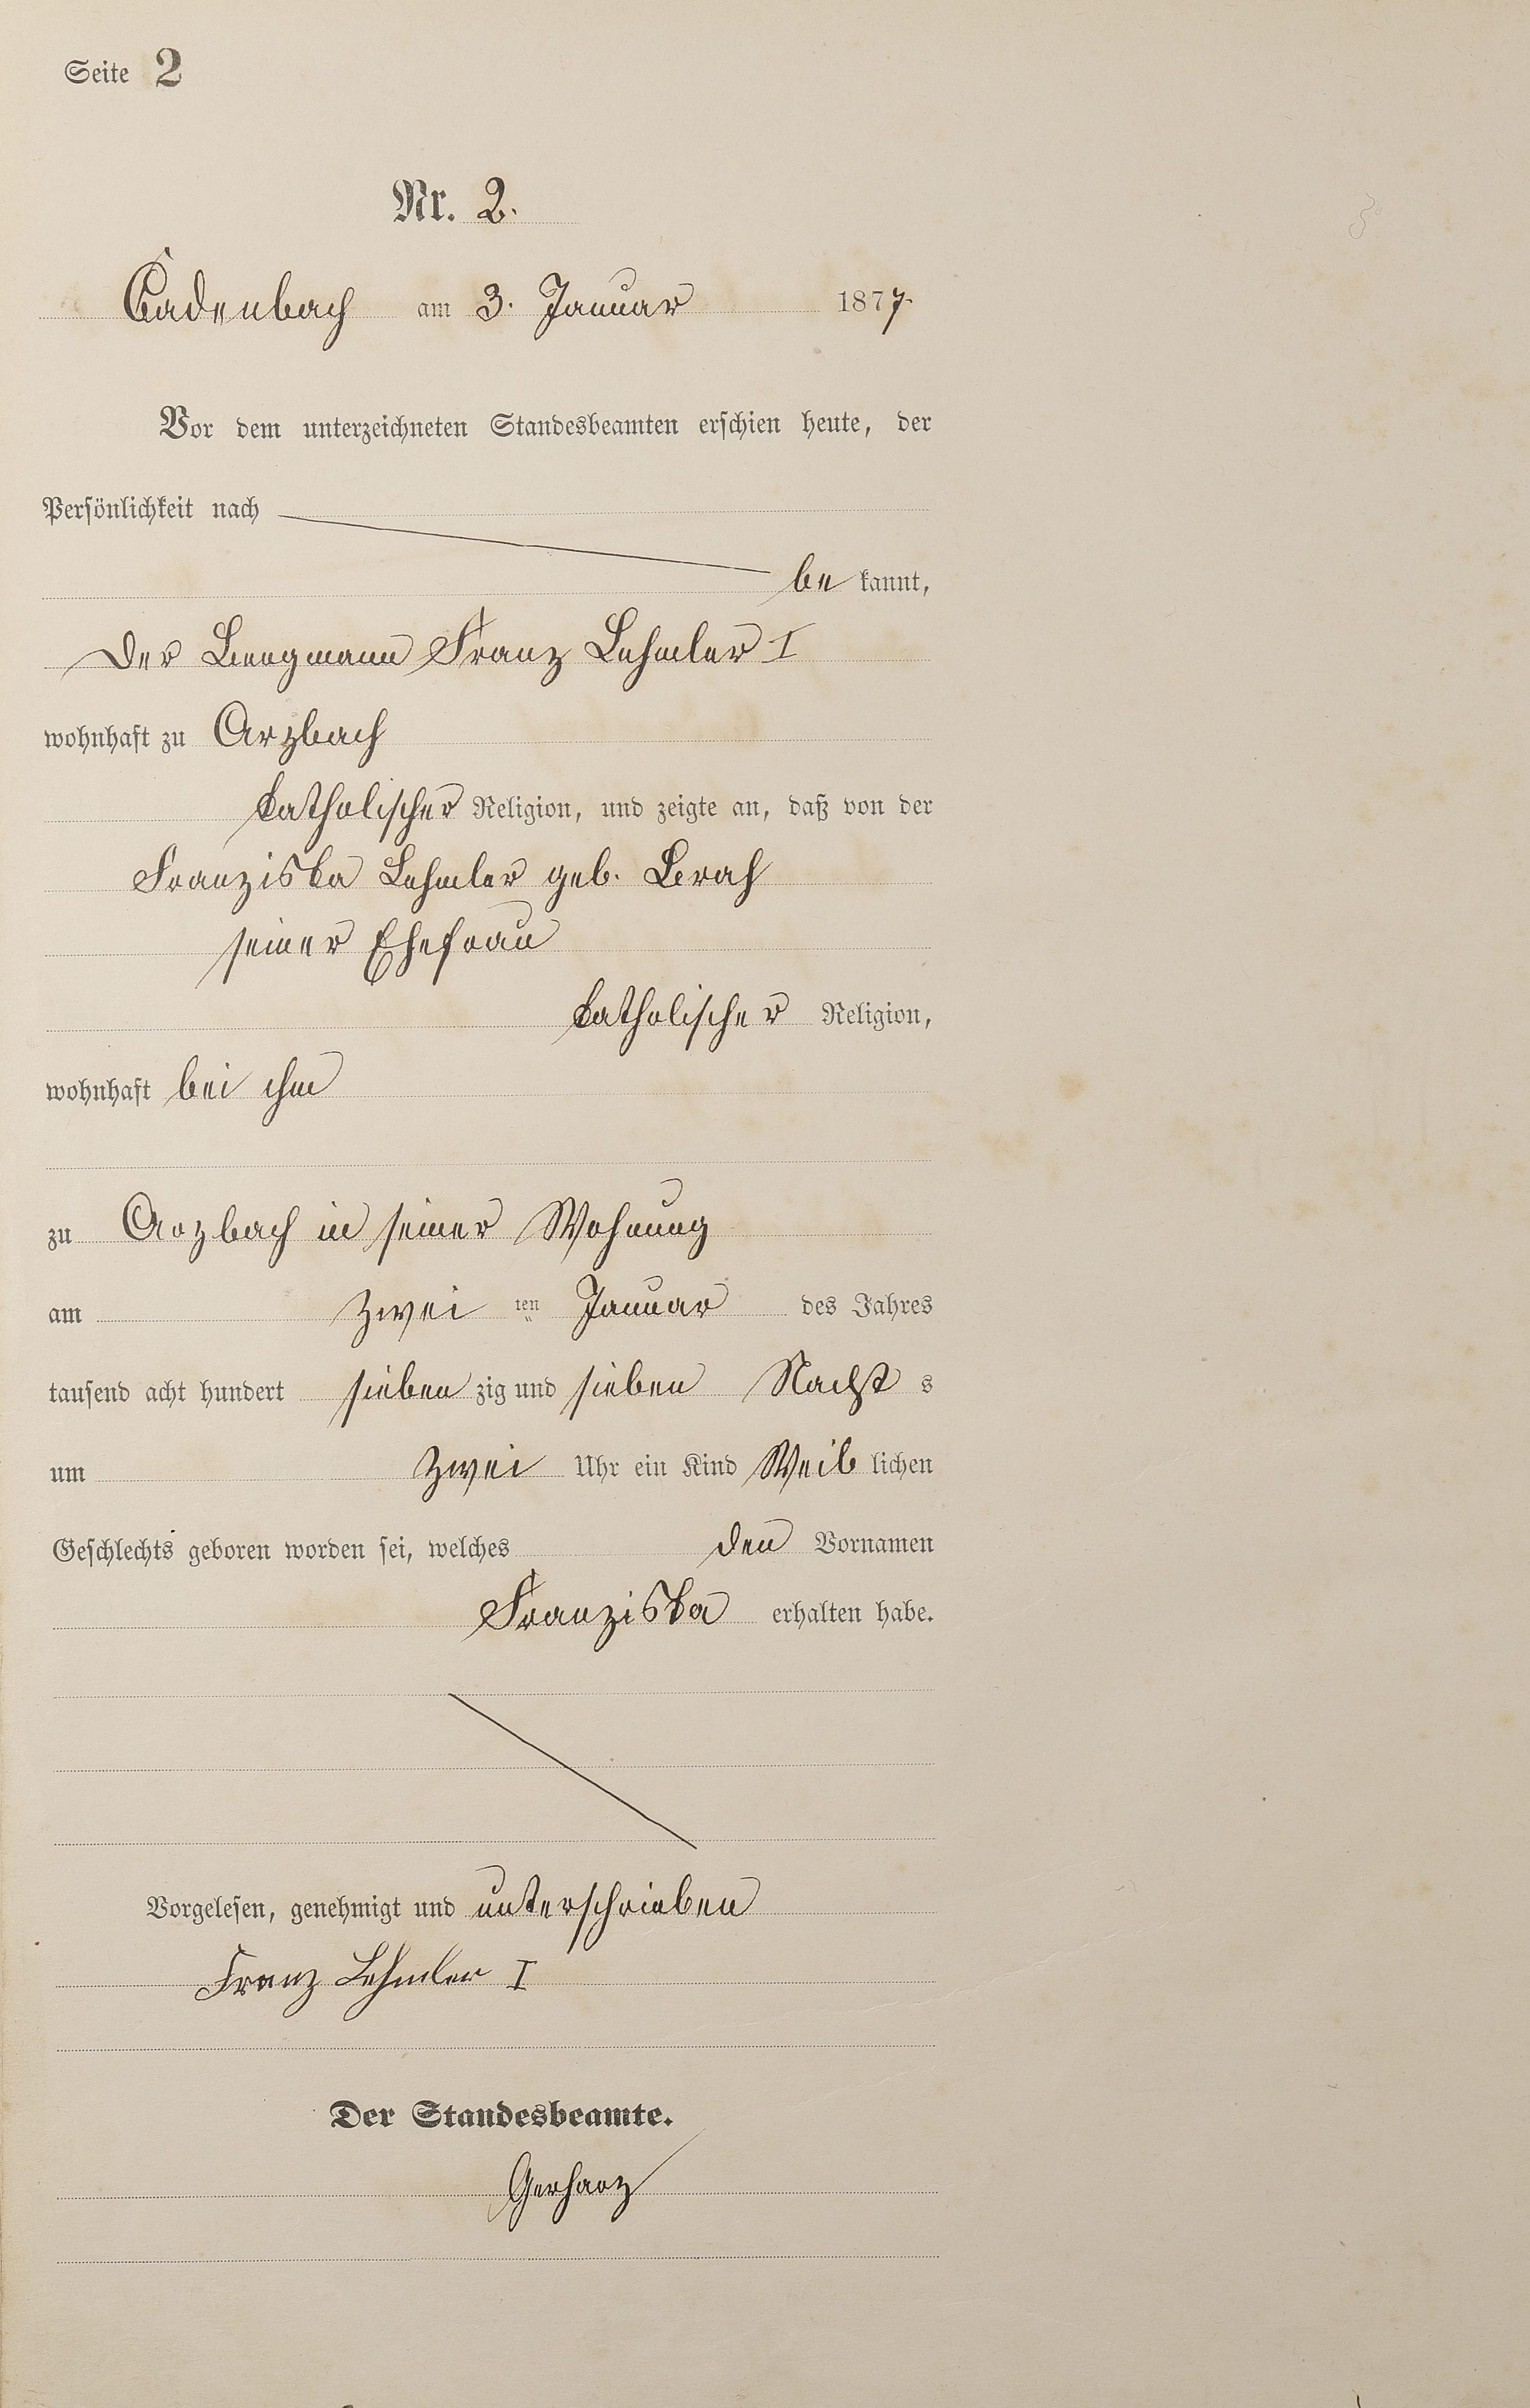 Seite 2
Nr. 2.
Cadenbach am 3. Januar 1877.
Vor dem unterzeichneten Standesbeamten erschien heute, der
Persönlichkeit nach
be kannt,
der Bergmann Franz Lehmler I
wohnhaft zu Arzbach
katholischer Religion, und zeigte an, daß von der
Franziska Lehmler geb. Brah
seiner Ehefrau
katholischer Religion,
wohnhaft bei ihm
zu Arzbach in seiner Wohnung
am zwei ten Januar des Jahres
tausend acht hundert sieben zig und sieben Nacht s
um zwei Uhr ein Kind Weib lichen
Geschlechts geboren worden sei, welches den Vornamen
Franziska erhalten habe.
Vorgelesen, genehmigt und unterschrieben
Franz Lehmler I
Der Standesbeamte.
Gerharz